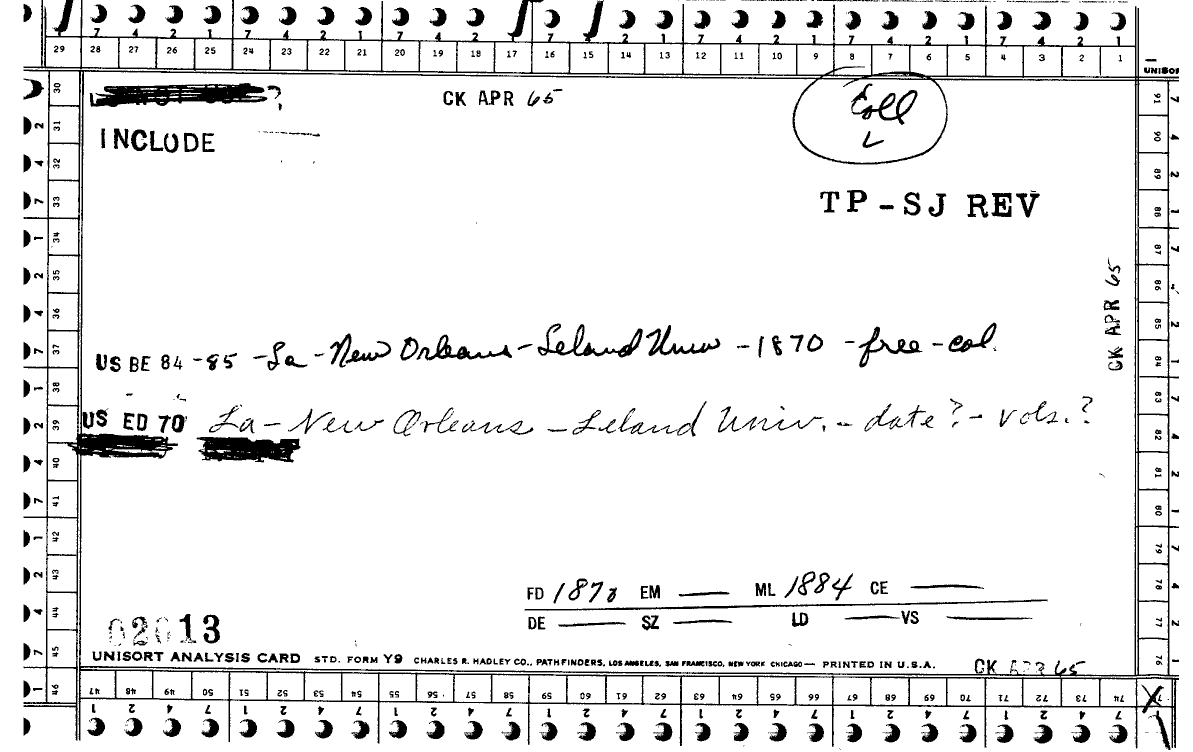 7 4 2 1 7 4 2 1 7 4 2 1 7 4 2 1 7 4 2 1 7 4 2 1 7 4 2 1
29 28 27 26 25 24 23 22 21 20 19 18 17 16 15 14 13 12 11 10 9 8 7 6 5 4 3 2 1
UNISOR
CK APR 65
Coll
INCLUDE
TP-SJ REV
CK APR 65
US BE 84-85 - La - New Orleans - Leland Univ - 1870 - free - col.
US ED 70 La - New Orleans - Leland Univ. - date? - vols.?
FD 1870 EM — ML 1884 CE —
DE — SZ — LD — VS —
02013
UNISORT ANALYSIS CARD STD. FORM Y9 CHARLES R. HADLEY CO., PATHFINDERS, LOS ANGELES, SAN FRANCISCO, NEW YORK CHICAGO — PRINTED IN U.S.A.
CK APR 65
30 31 32 33 34 35 36 37 38 39 40 41 42 43 44 45 46
91 90 89 88 87 86 85 84 83 82 81 80 79 78 77 76
47 48 49 50 51 52 53 54 55 56 57 58 59 60 61 62 63 64 65 66 67 68 69 70 71 72 73 74
1 2 4 7 1 2 4 7 1 2 4 7 1 2 4 7 1 2 4 7 1 2 4 7 1 2 4 7